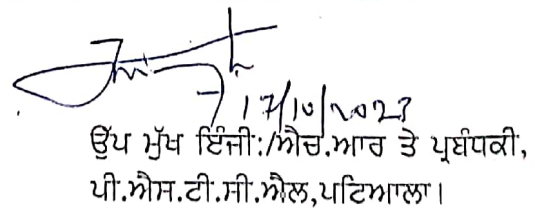 17/10/2023
ਉੱਪ ਮੁੱਖ ਇੰਜੀ:/ਐਚ.ਆਰ ਤੇ ਪ੍ਰਬੰਧਕੀ,
ਪੀ.ਐਸ.ਟੀ.ਸੀ.ਐਲ,ਪਟਿਆਲਾ।